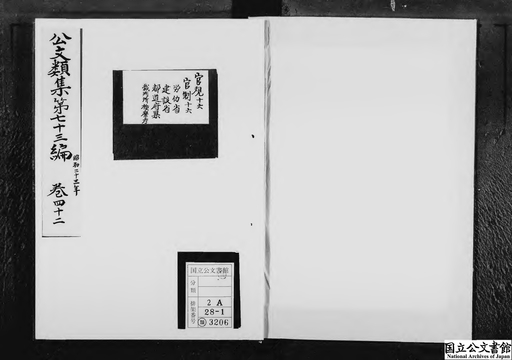 公文類集第七十三編
昭和二十三年
巻四十二
官規十六
官制十六
労働省
建設省
都道府県
国立公文書館
分類
排架番号
2 A
28-1
3206
国立公文書館
National Archives of Japan